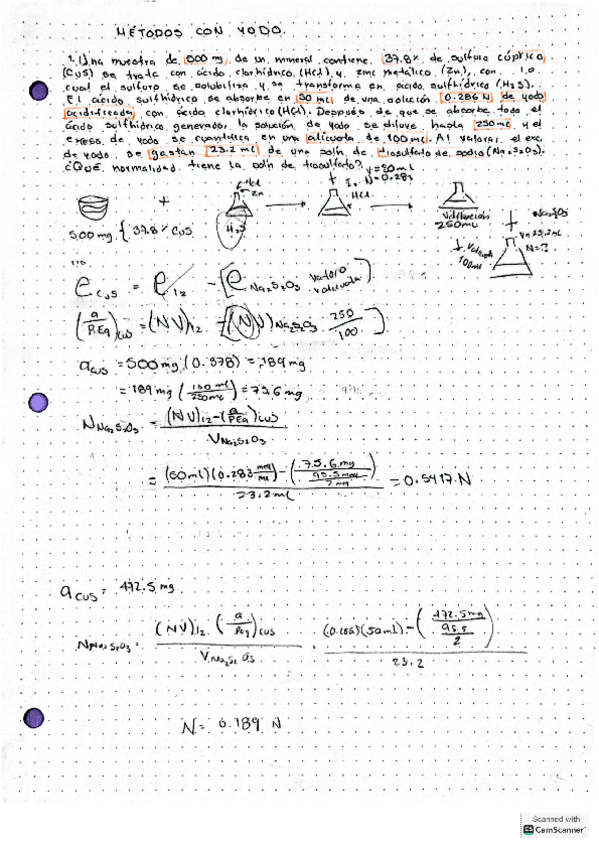 MÉTODOS CON YODO.
1. Una muestra de 500 mg de un mineral contiene 37.8% de sulfuro cúprico
(CuS) se trata con ácido clorhídrico (Hcl) y zinc metálico (Zn), con lo
cual el sulfuro se solubiliza y se transforma en ácido sulfhídrico (H₂S).
El ácido sulfhídrico se absorbe en 50 ml de una solución 0.286 N de yodo
acidificada con ácido clorhídrico (HCl). Después de que se absorbe todo el
ácido sulfhídrico generado, la solución de yodo se diluye hasta 250 ml y el
exceso de yodo se cuantifica en una alícuota de 100 ml. Al valorar el exc
de yodo se gastan 23.2 ml de una soln de tiosulfato de sodio (Na₂S₂O₃).
¿Qué normalidad tiene la soln de tiosulfato?
V=50 ml
N=0.283
I₂
HCl.
Hcl
Zn
+
H₂S
500 mg { 37.8% CuS
250 mL
100ml
+ Na₂S₂O₃
V=23.2ml
N=?
e CuS = e I₂ - [e Na₂S₂O₃ ]
(a/PEq)CuS = (NV)I₂ - [(NV)Na₂S₂O₃ 250/100]
a CuS = 500 mg (0.378) = 189 mg
= 189 mg (100 ml/250ml) = 75.6 mg
N Na₂S₂O₃ = (NV)I₂-(a/PEq)CuS / V Na₂S₂O₃
= (50ml)(0.283 meq/ml) - (75.6 mg / 95.5 / 2) / 23.2 mL = 0.5417 N
a CuS = 472.5 mg
N Na₂S₂O₃ (NV)I₂ (a/Peq)CuS / V Na₂S₂O₃ (50ml) - (472.5mg / 95.5 / 2) / 23.2
N = 0.189 N
Scanned with
CS CamScanner